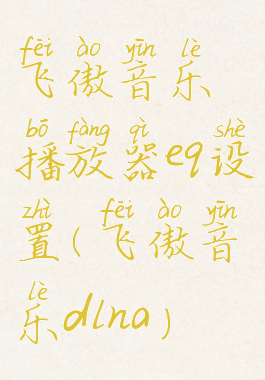 fēi ào yīn lè
飞傲音乐
bō fàng qì shè
播放器eq设
zhì fēi ào yīn
置(飞傲音
lè
乐dlna)